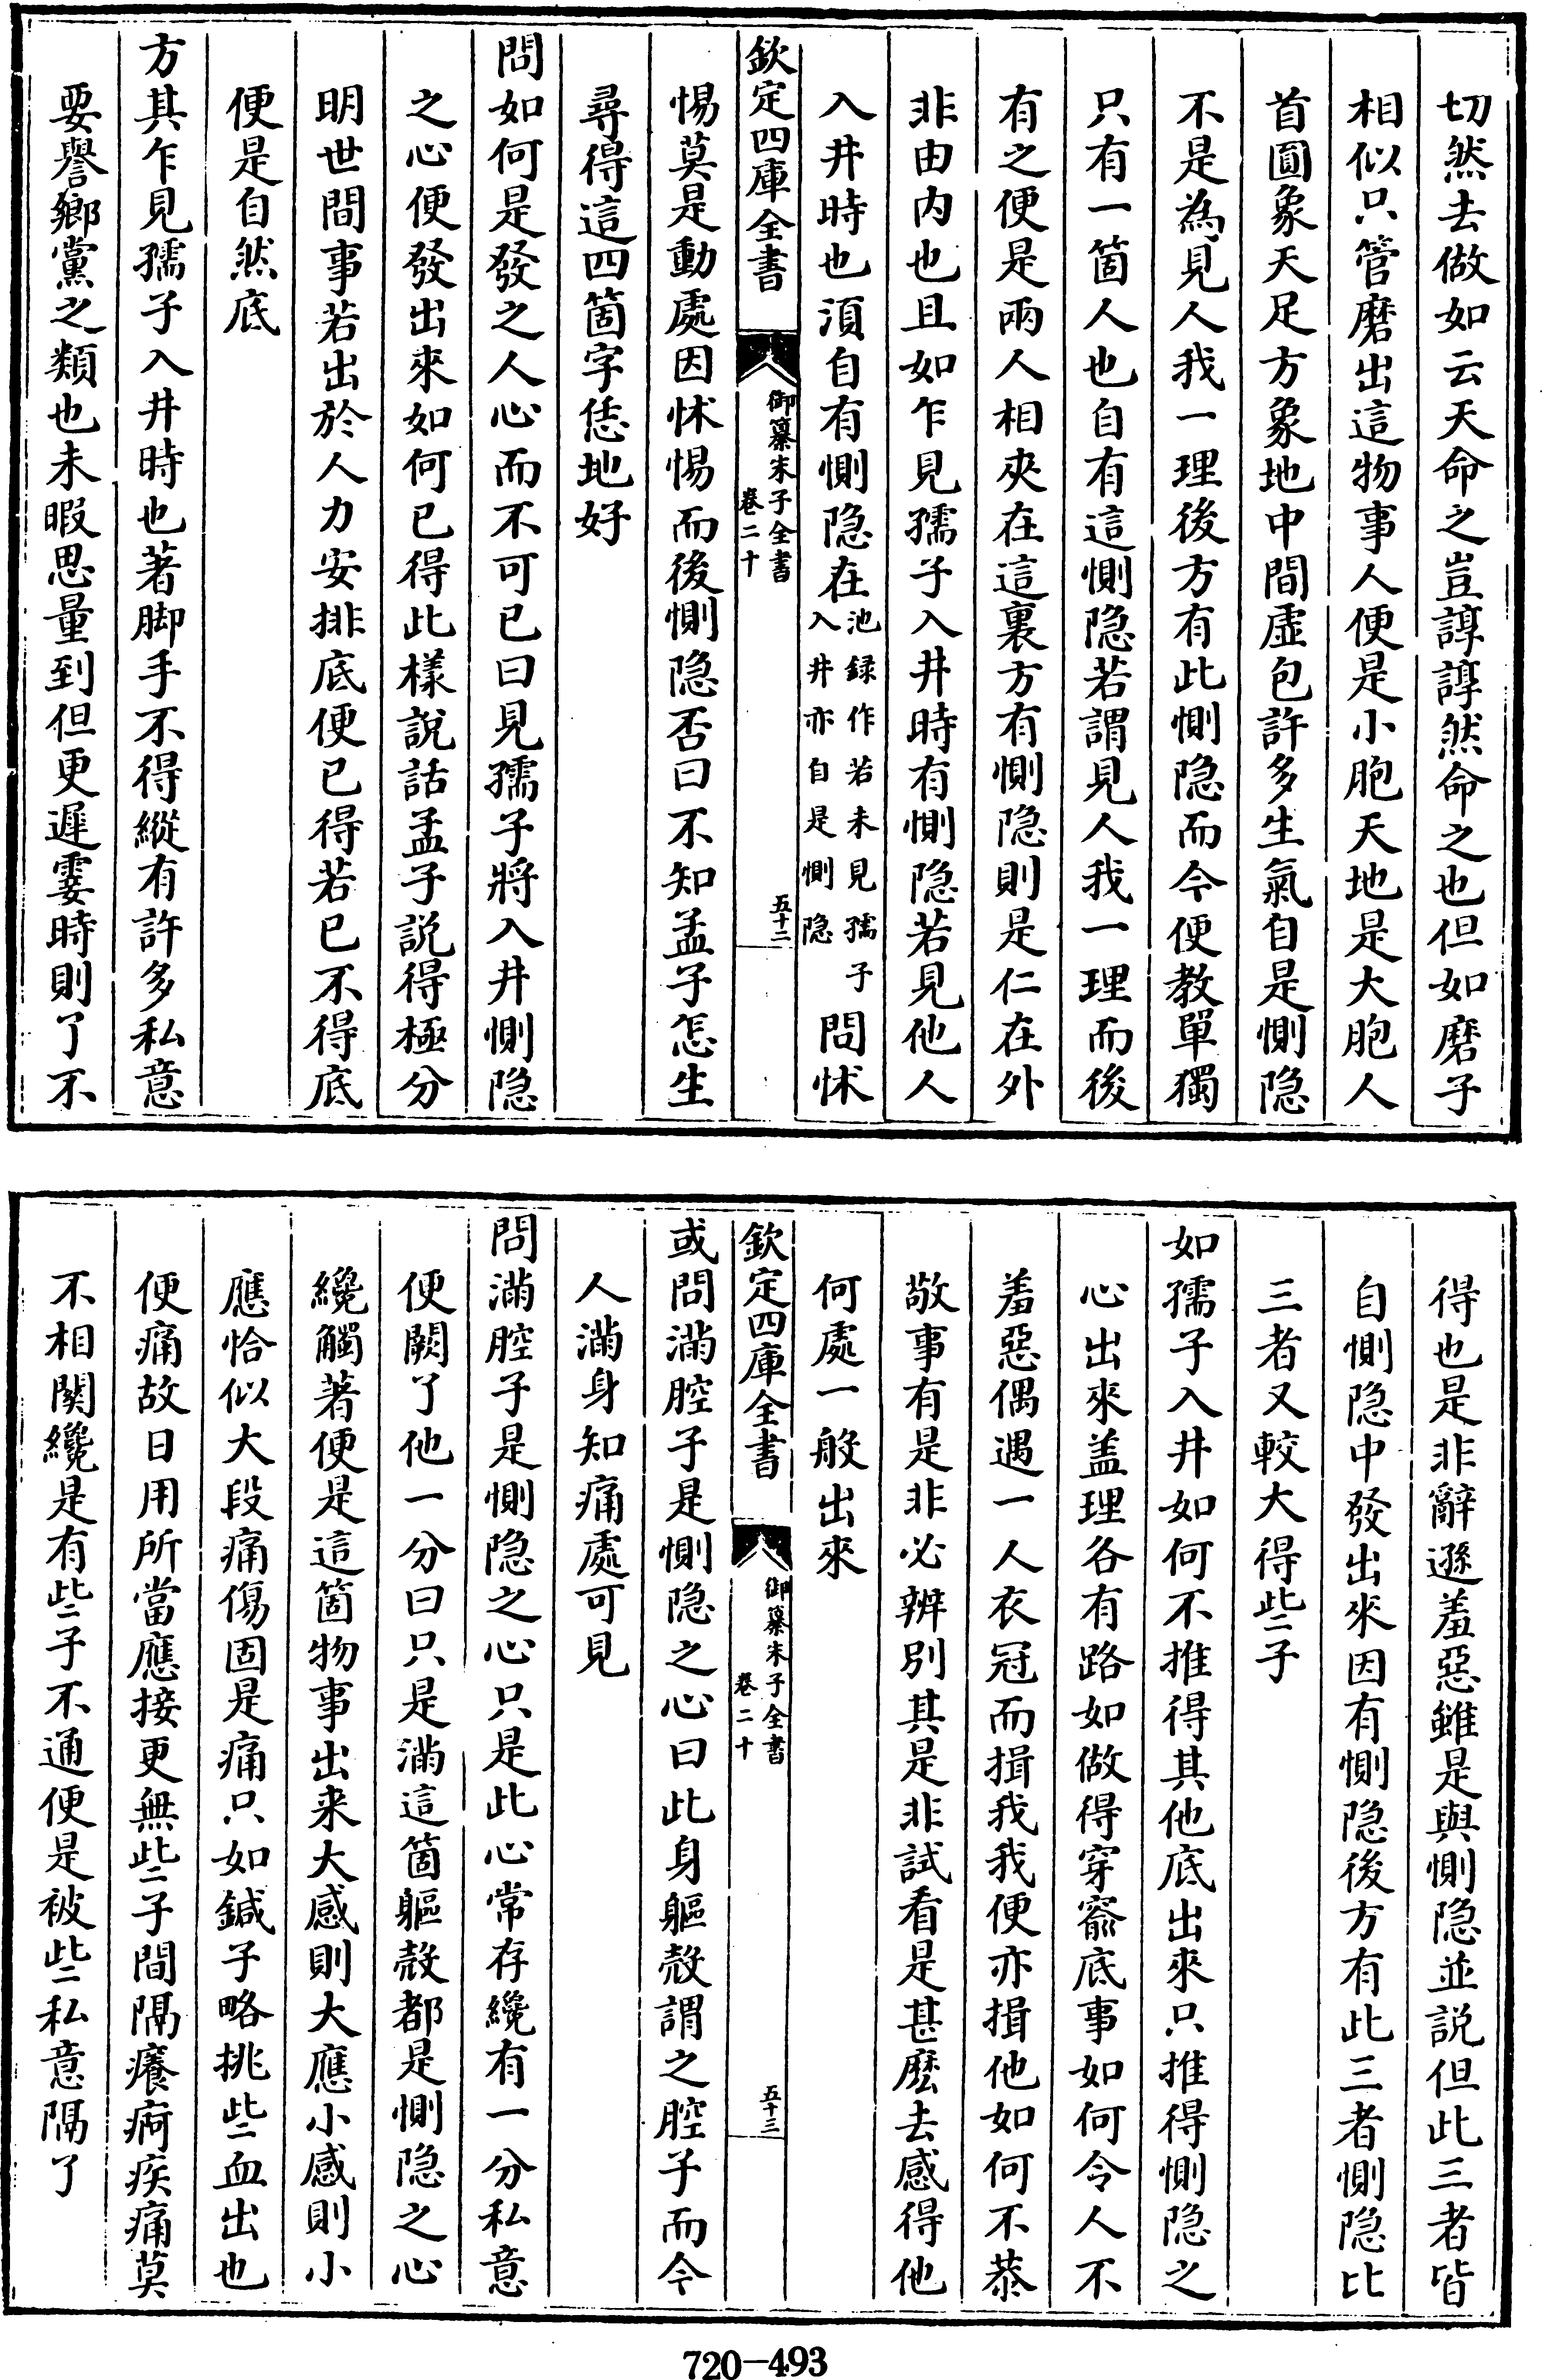 切然去做如云天命之豈諄諄然命之也但如磨子
相似只管磨出這物事人便是小胞天地是大胞人
首圓象天足方象地中間虛包許多生氣自是惻隐
不是為見人我一理後方有此惻隐而今便教單獨
只有一箇人也自有這惻隐若謂見人我一理而後
有之便是兩人相夾在這裏方有惻隐則是仁在外
非由内也且如乍見孺子入井時有惻隐若見他人
入井時也湏自有惻隐在池録作若未見孺子入井亦自是惻隐問怵
欽定四庫全書 御纂朱子全書 卷二十 五十二
惕莫是動處因怵惕而後惻隐否曰不知孟子怎生
尋得這四箇字恁地好
問如何是發之人心而不可已曰見孺子將入井惻隐
之心便發出來如何已得此樣說話孟子説得極分
明世間事若出於人力安排底便已得若已不得底
便是自然底
方其乍見孺子入井時也著脚手不得縱有許多私意
要譽鄉黨之類也未暇思量到但更遲霎時則了不
得也是非辭遜羞惡雖是與惻隐並説但此三者皆
自惻隐中發出來因有惻隐後方有此三者惻隐比
三者又較大得些子
如孺子入井如何不推得其他底出來只推得惻隐之
心出來盖理各有路如做得穿窬底事如何令人不
羞惡偶遇一人衣冠而揖我我便亦揖他如何不恭
敬事有是非必辨別其是非試看是甚麽去感得他
何處一般出來
欽定四庫全書 御纂朱子全書 卷二十 五十三
或問滿腔子是惻隐之心曰此身軀殻謂之腔子而今
人滿身知痛處可見
問滿腔子是惻隐之心只是此心常存纔有一分私意
便闕了他一分曰只是滿這箇軀殻都是惻隐之心
纔觸著便是這箇物事出来大感則大應小感則小
應恰似大段痛傷固是痛只如鍼子略挑些血出也
便痛故日用所當應接更無些子間隔癢痾疾痛莫
不相關纔是有些子不通便是被些私意隔了
720-493